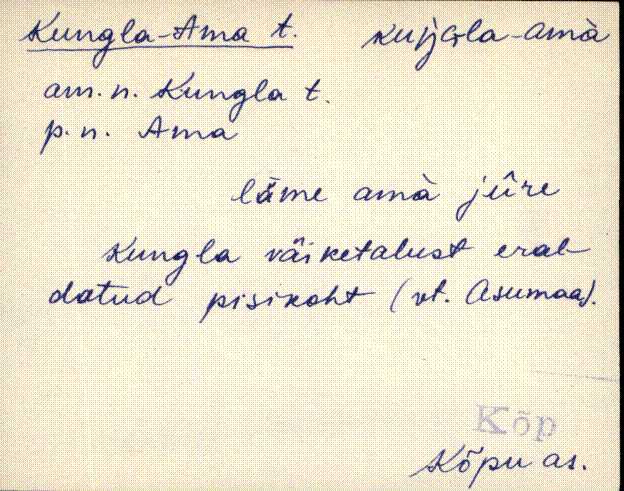 Kungla-Ama t. kuŋGla-amà
am.n. Kungla t.
p.n. Ama
läme amà jûre
Kungla väiketalust eral-
datud pisikoht (vt. Asumaa).
Kõp
Kõpu as.